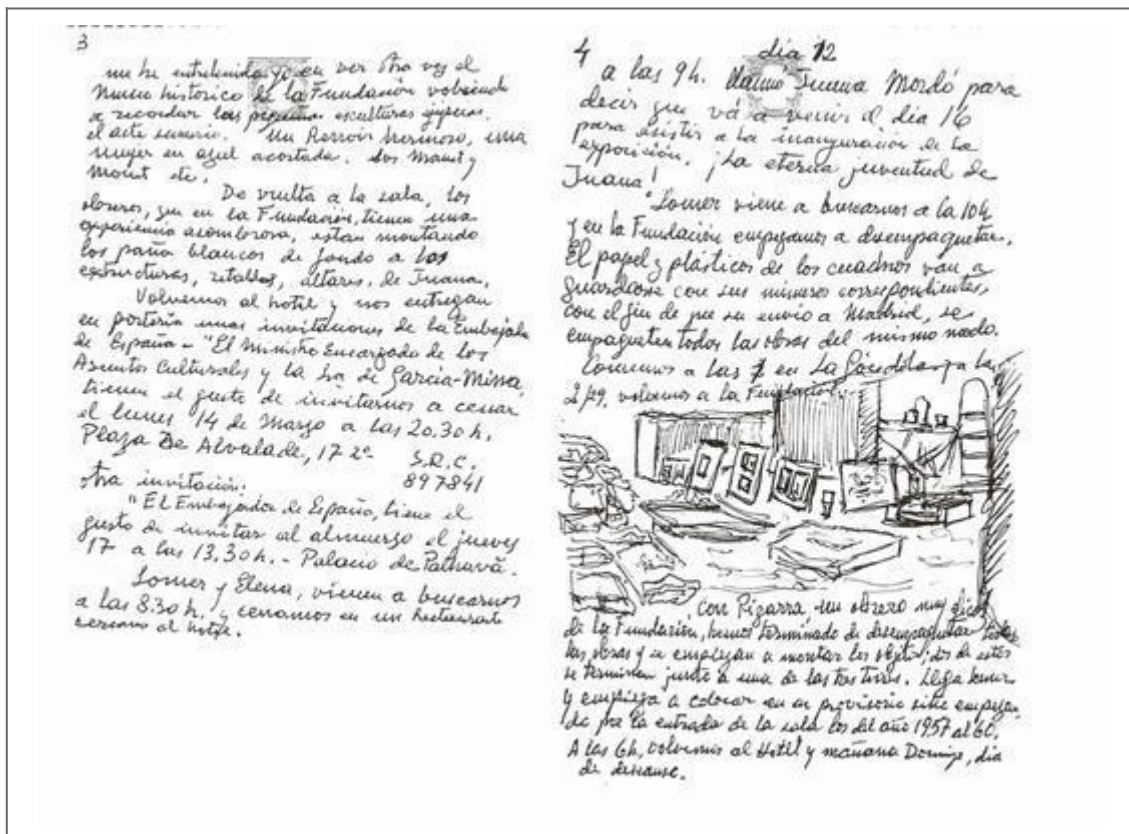 3
me he entretenido yo en ver otra vez el
Museo historico de la Fundación volviendo
a recordar las pequeñas esculturas egipcias.
el arte sumerio. Un Renoir hermoso, una
mujer en azul acostada. dos Manet y
Monet etc.
De vuelta a la sala, los
obreros, que en la Fundación, tienen una
experiencia asombrosa, estan montando
los paño blancos de fondo a las
estructuras, retablos, altares, de Juana.
Volvemos al hotel y nos entregan
en portería unas invitaciones de la Embajada
de España - "El Ministro Encargado de los
Asuntos Culturales y la Sra de García-Missa,
tienen el gusto de invitarnos a cenar
el lunes 14 de Marzo a las 20.30 h.
Plaza De Alvalade, 17 2º-
S.R.C.
897841
otra invitación.
"El Embajador de España, tiene el
gusto de invitar al almuerzo el jueves
17 a las 13.30 h. - Palacio de Palhavã.
Somer y Elena, vienen a buscarnos
a las 8.30 h. y cenamos en un Restaurante
cercano al hotel.
4 día 12
a las 9h. llamó Juana Mordó para
decir que vá a venir el dia 16
para asistir a la inauguración de la
exposición. ¡La eterna juventud de
Juana!
Somer viene a buscarnos a la 10h
y en la Fundación empezamos a desempaquetar.
El papel y plásticos de los cuadros van a
guardarse con sus números correspondientes,
con el fin de que su envio a Madrid, se
empaqueten todas las obras del mismo modo.
Comemos a las 1 en La Góndola y a las
2 volvemos a la Fundación.
Con Pizarra un obrero muy
de la Fundación, hemos terminado de desempaquetar todas
las obras y se empiezan a montar los objetos; dos de estos
se terminan junto a una de las . Llega Somer
y empieza a colocar en un provisorio sitio empezan-
do por la entrada de la sala los del año 1957 al 60.
A las 6h. volvemos al Hotel y mañana Domingo, dia
de descanso.